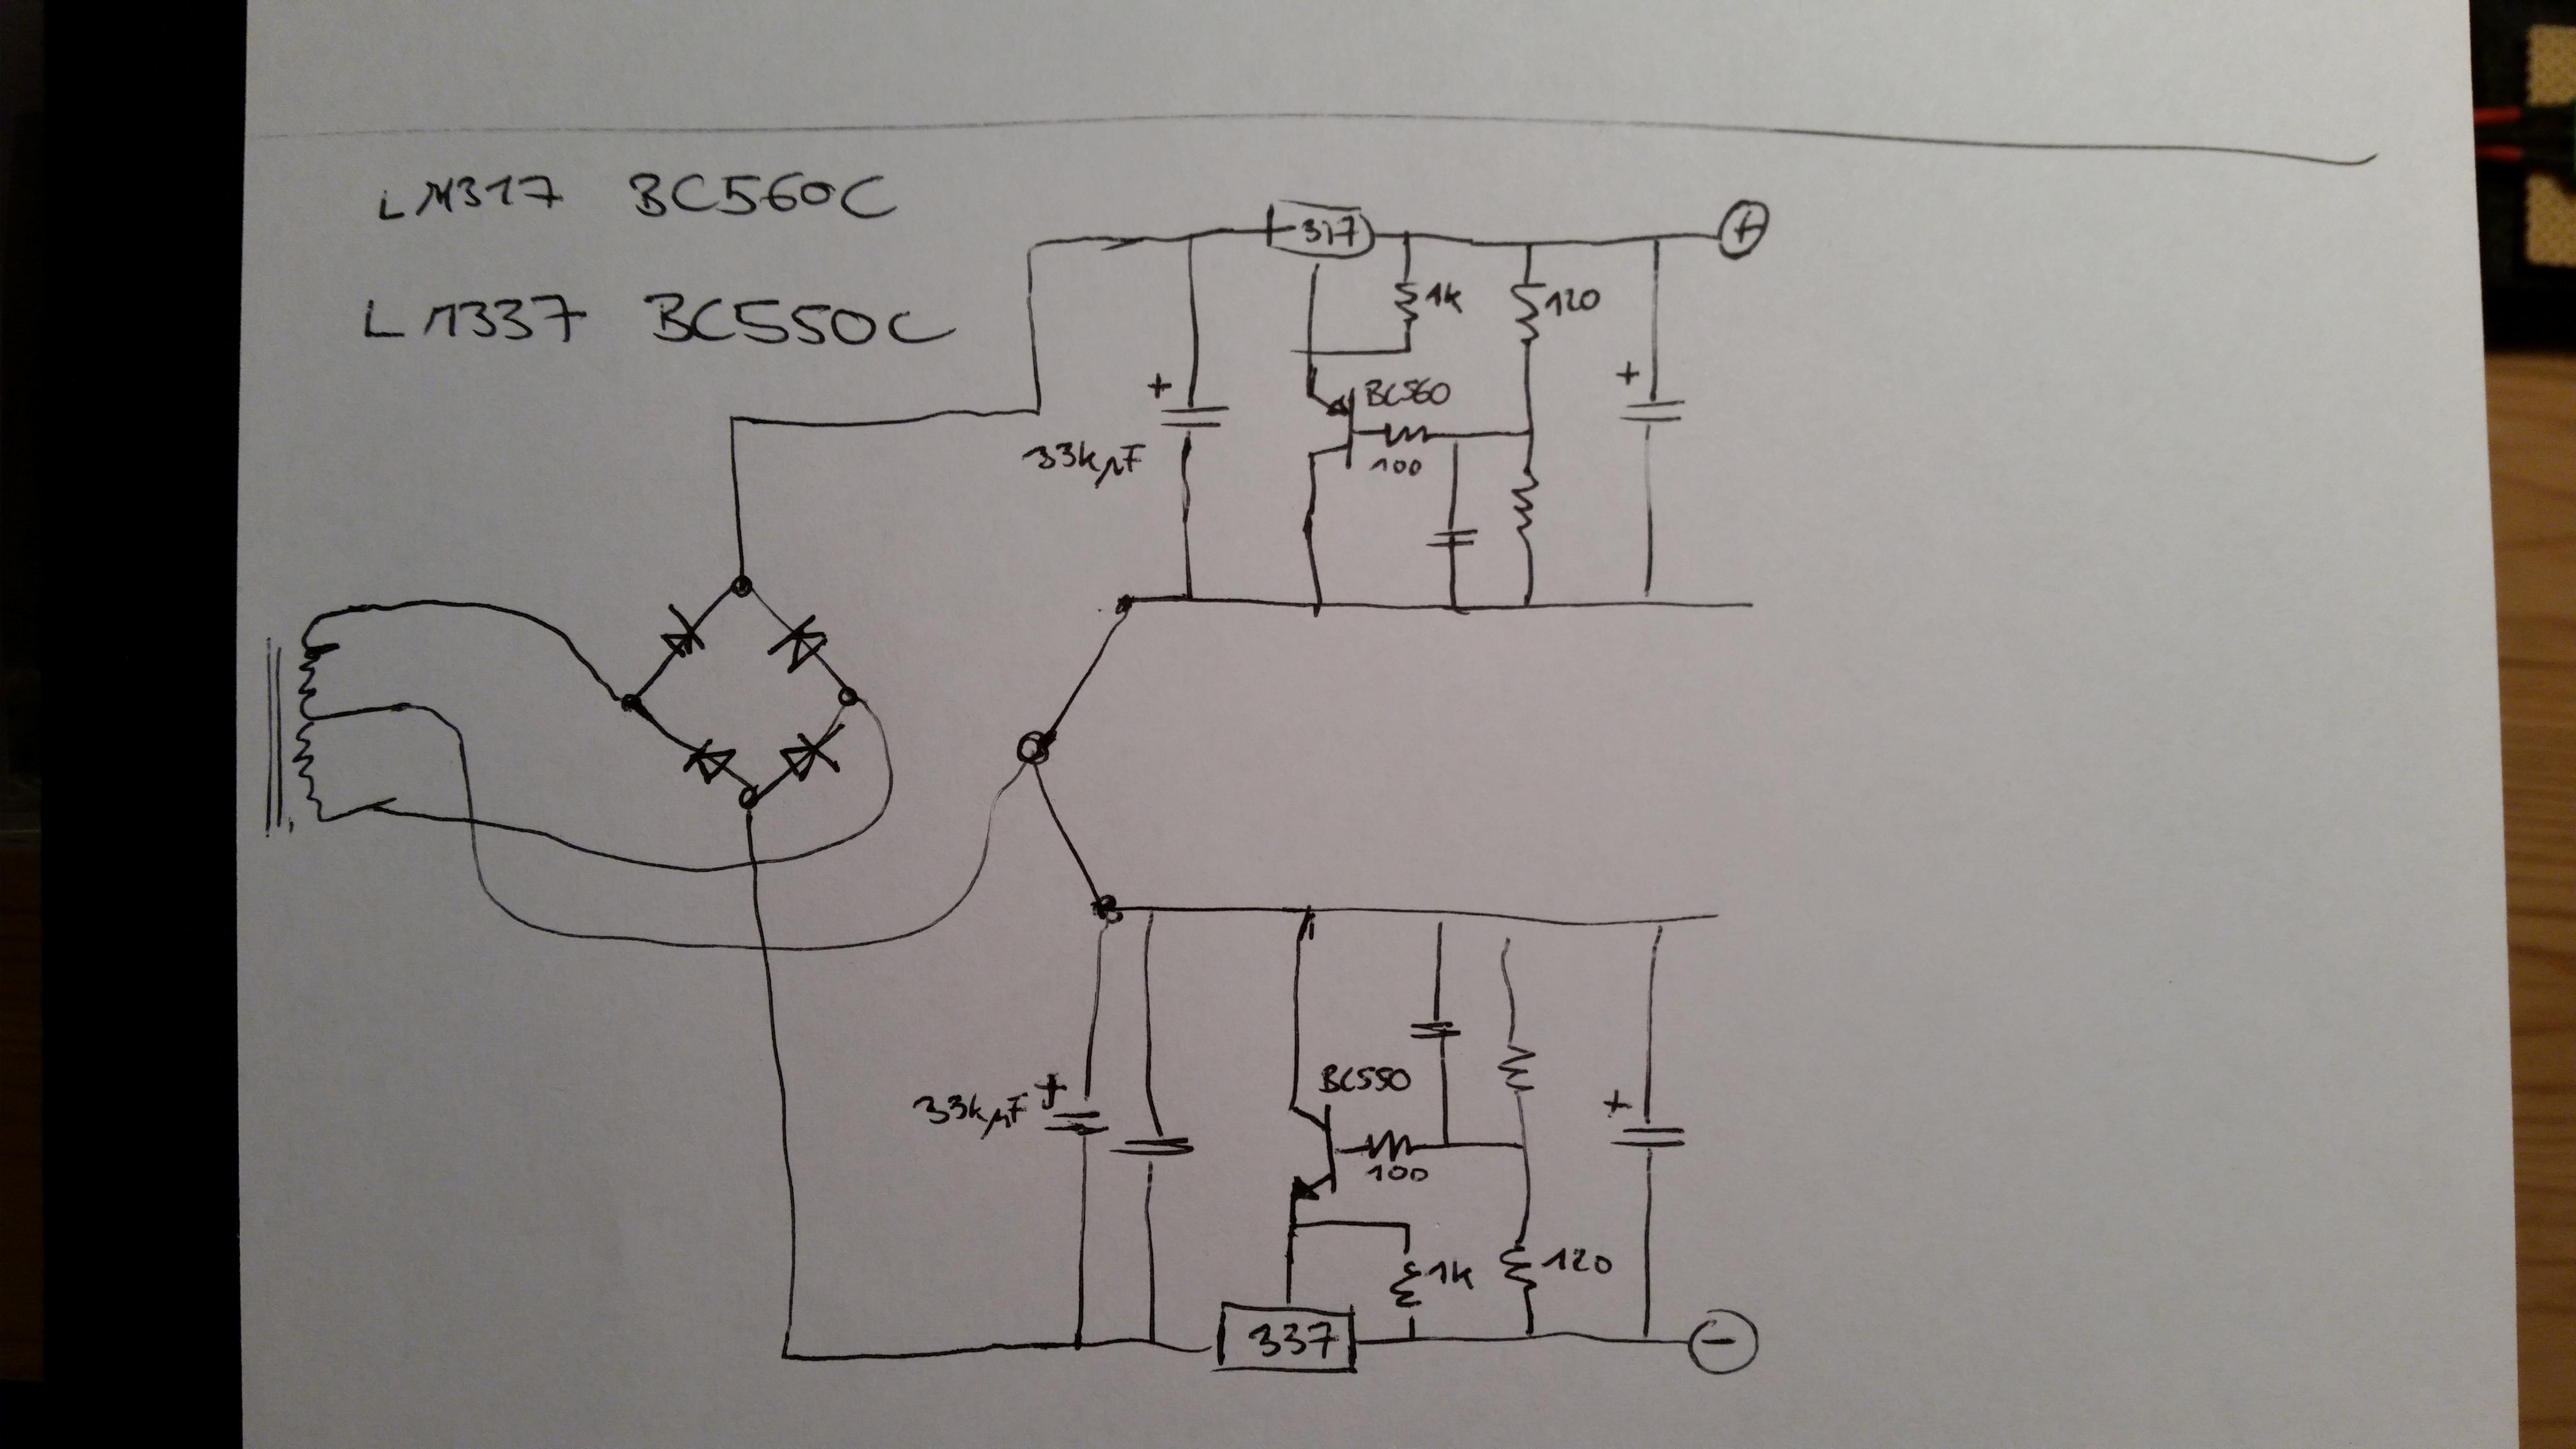 LM317 BC560C
LM337 BC550C
317
+
1k
120
+
BC560
+
33kµF
100
BC550
+
33kµF
+
100
1k
120
337
−